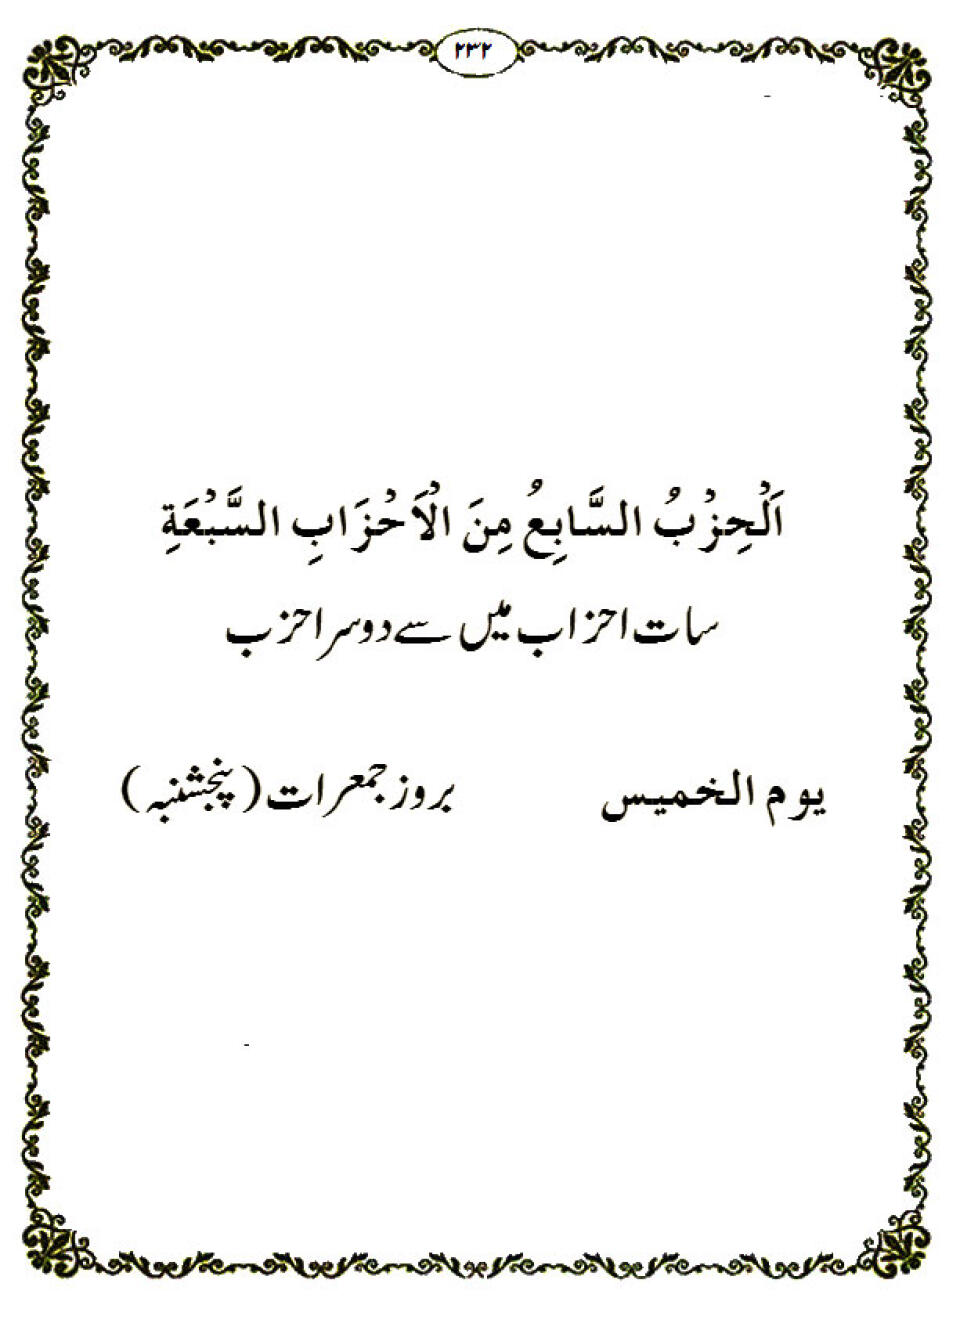 ۲۳۲
اَلْحِزْبُ السَّابِعُ مِنَ الْاَحْزَابِ السَّبْعَةِ
سات احزاب میں سے دوسرا حزب
يوم الخميس
بروز جمعرات (پنجشنبہ)